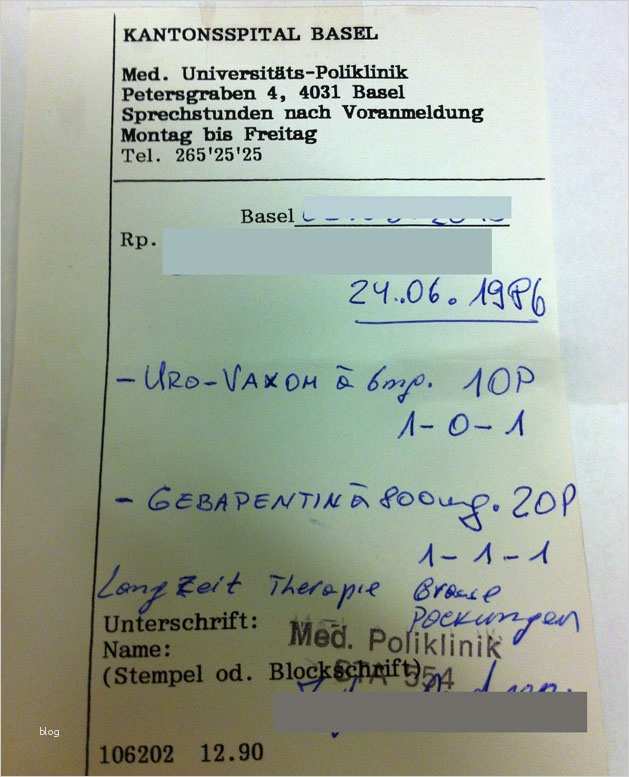 KANTONSSPITAL BASEL
Med. Universitäts-Poliklinik
Petersgraben 4, 4031 Basel
Sprechstunden nach Voranmeldung
Montag bis Freitag
Tel. 265'25'25
Basel
Rp.
24.06.1986
- URO-VAXOM à 6mg. 10P
1-0-1
- GEBAPENTIN à 800mg. 20P
1-1-1
LangZeit Therapie
Packungen
Unterschrift:
Name:
Med. Poliklinik
(Stempel od. Blockschrift)
554
blog
106202 12.90